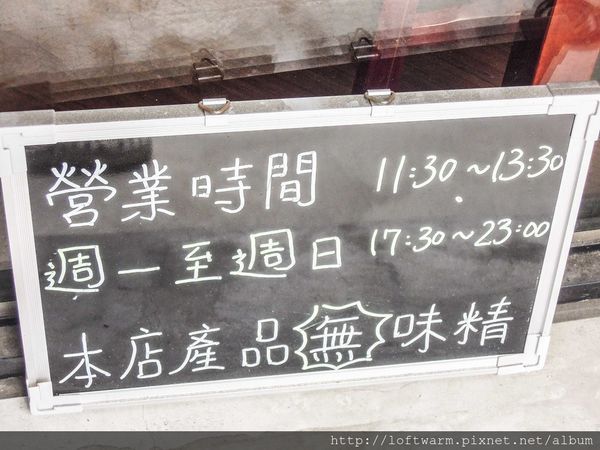 營業時間 11:30~13:30
週一至週日 17:30~23:00
本店產品無味精
http://loftwarm.pixnet.net/album